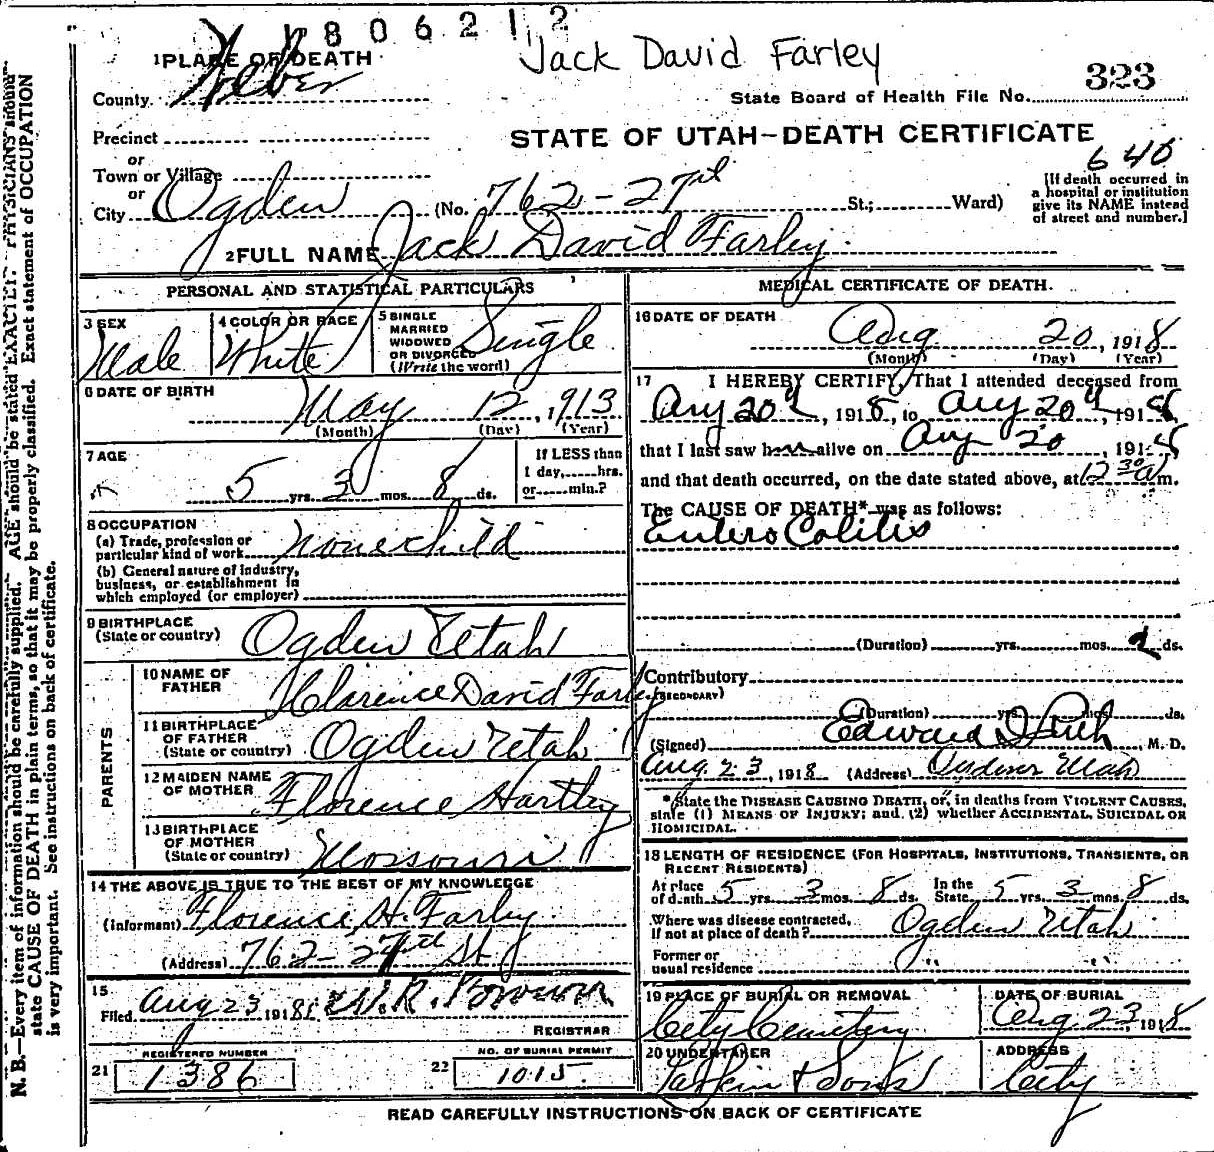 1806212
Jack David Farley
1 PLACE OF DEATH
County Weber
323
State Board of Health File No.
Precinct
STATE OF UTAH—DEATH CERTIFICATE
640
or
Town or Village
or
City Ogden (No. 762-27th St.; Ward)
[If death occurred in a hospital or institution give its NAME instead of street and number.]
2 FULL NAME Jack David Farley.
PERSONAL AND STATISTICAL PARTICULARS
3 SEX Male
4 COLOR OR RACE White
5 SINGLE MARRIED WIDOWED OR DIVORCED (Write the word) Single
6 DATE OF BIRTH
May 12, 1913
(Month) (Day) (Year)
7 AGE
5 yrs. 3 mos. 8 ds.
If LESS than 1 day, hrs. or min.?
8 OCCUPATION
(a) Trade, profession or particular kind of work none child
(b) General nature of industry, business, or establishment in which employed (or employer)
9 BIRTHPLACE (State or country) Ogden Utah
PARENTS
10 NAME OF FATHER Clarence David Farley
11 BIRTHPLACE OF FATHER (State or country) Ogden Utah
12 MAIDEN NAME OF MOTHER Florence Hartley
13 BIRTHPLACE OF MOTHER (State or country) Mossouri
14 THE ABOVE IS TRUE TO THE BEST OF MY KNOWLEDGE
(Informant) Florence H. Farley
(Address) 762-27th St
15
Filed Aug 23 1918 W.R. Brown
REGISTRAR
REGISTERED NUMBER
21 1386
NO. OF BURIAL PERMIT
22 1015
MEDICAL CERTIFICATE OF DEATH.
16 DATE OF DEATH
Aug 20, 1918
(Month) (Day) (Year)
17 I HEREBY CERTIFY, That I attended deceased from
Aug 20th, 1918, to Aug 20th, 1918,
that I last saw him alive on Aug 20, 1918,
and that death occurred, on the date stated above, at 12 30 a m.
The CAUSE OF DEATH* was as follows:
Entero Colitis
(Duration) yrs. mos. 2 ds.
Contributory
(SECONDARY)
(Duration) yrs. mos. ds.
(Signed) Edward I. Rich, M. D.
Aug. 23, 1918 (Address) Ogden Utah
*State the DISEASE CAUSING DEATH, or, in deaths from VIOLENT CAUSES, state (1) MEANS OF INJURY; and (2) whether ACCIDENTAL, SUICIDAL OR HOMICIDAL.
18 LENGTH OF RESIDENCE (FOR HOSPITALS, INSTITUTIONS, TRANSIENTS, OR RECENT RESIDENTS)
At place of death 5 yrs. 3 mos. 8 ds. In the State 5 yrs. 3 mos. 8 ds.
Where was disease contracted, If not at place of death? Ogden Utah
Former or usual residence " "
19 PLACE OF BURIAL OR REMOVAL City Cemetery
DATE OF BURIAL Aug 23, 1918
20 UNDERTAKER Larkin & Sons
ADDRESS City
READ CAREFULLY INSTRUCTIONS ON BACK OF CERTIFICATE
N. B.—Every item of information should be carefully supplied. AGE should be stated EXACTLY. PHYSICIANS should
state CAUSE OF DEATH in plain terms, so that it may be properly classified. Exact statement of OCCUPATION
is very important. See instructions on back of certificate.